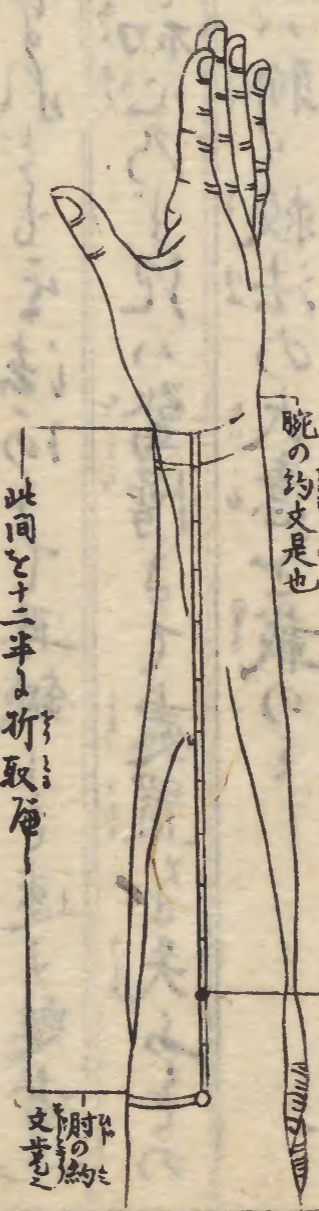 腕の約文是也
此間を十二半に折取
肘の約
文